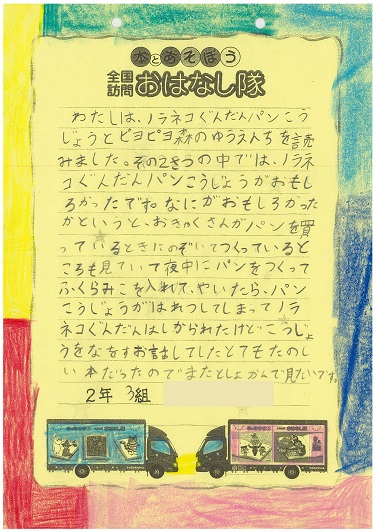 本とあそぼう
全国訪問おはなし隊
わたしは、ノラネコぐんだんパンこう
じょうとピヨピヨ森のゆうえんちを読
みました。その2さつの中では、ノラネ
コぐんだんパンこうじょうがおもし
ろかったです。なにがおもしろかった
かというと、おきゃくさんがパンを買
っているときにのぞいてつくっていると
ころも見ていて夜中にパンをつくって
ふくらみこを入れて、やいたら、パン
こうじょうがはれつしてしまってノラ
ネコぐんだんはしかられたけどこうじょ
うをなをすお話してしたとてもたのし
い本だったのでまたとしょかんで見たいです。
2年 3組